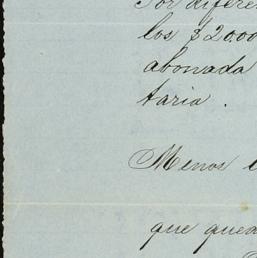 Por difere
los $20.00
abonada
taria.
Menos e
que queda